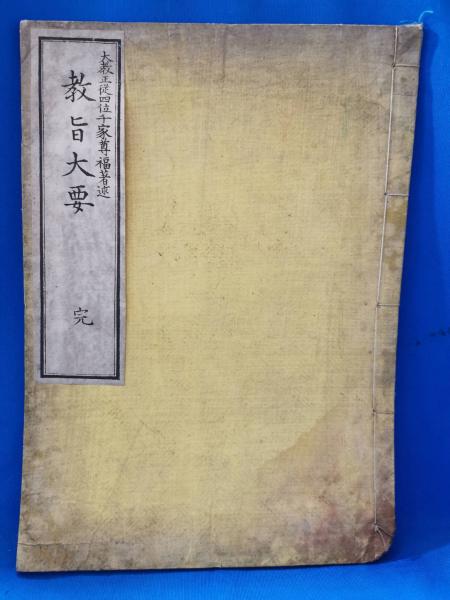 大教正從四位千家尊福著述
教旨大要
完